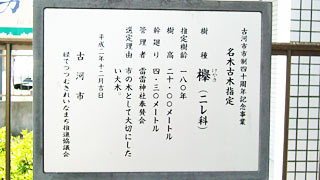 古河市市制四十周年記念事業
名木古木指定
樹種 欅(ニレ科)
けやき
指定樹齢 一八〇年
樹高 二十・〇〇メートル
幹廻り 四・三〇メートル
管理者 雷電神社奉賛会
選定理由 市の木として大切にした
い大木
平成二年十二月吉日
古河市
緑でつつむきれいなまち推進協議会